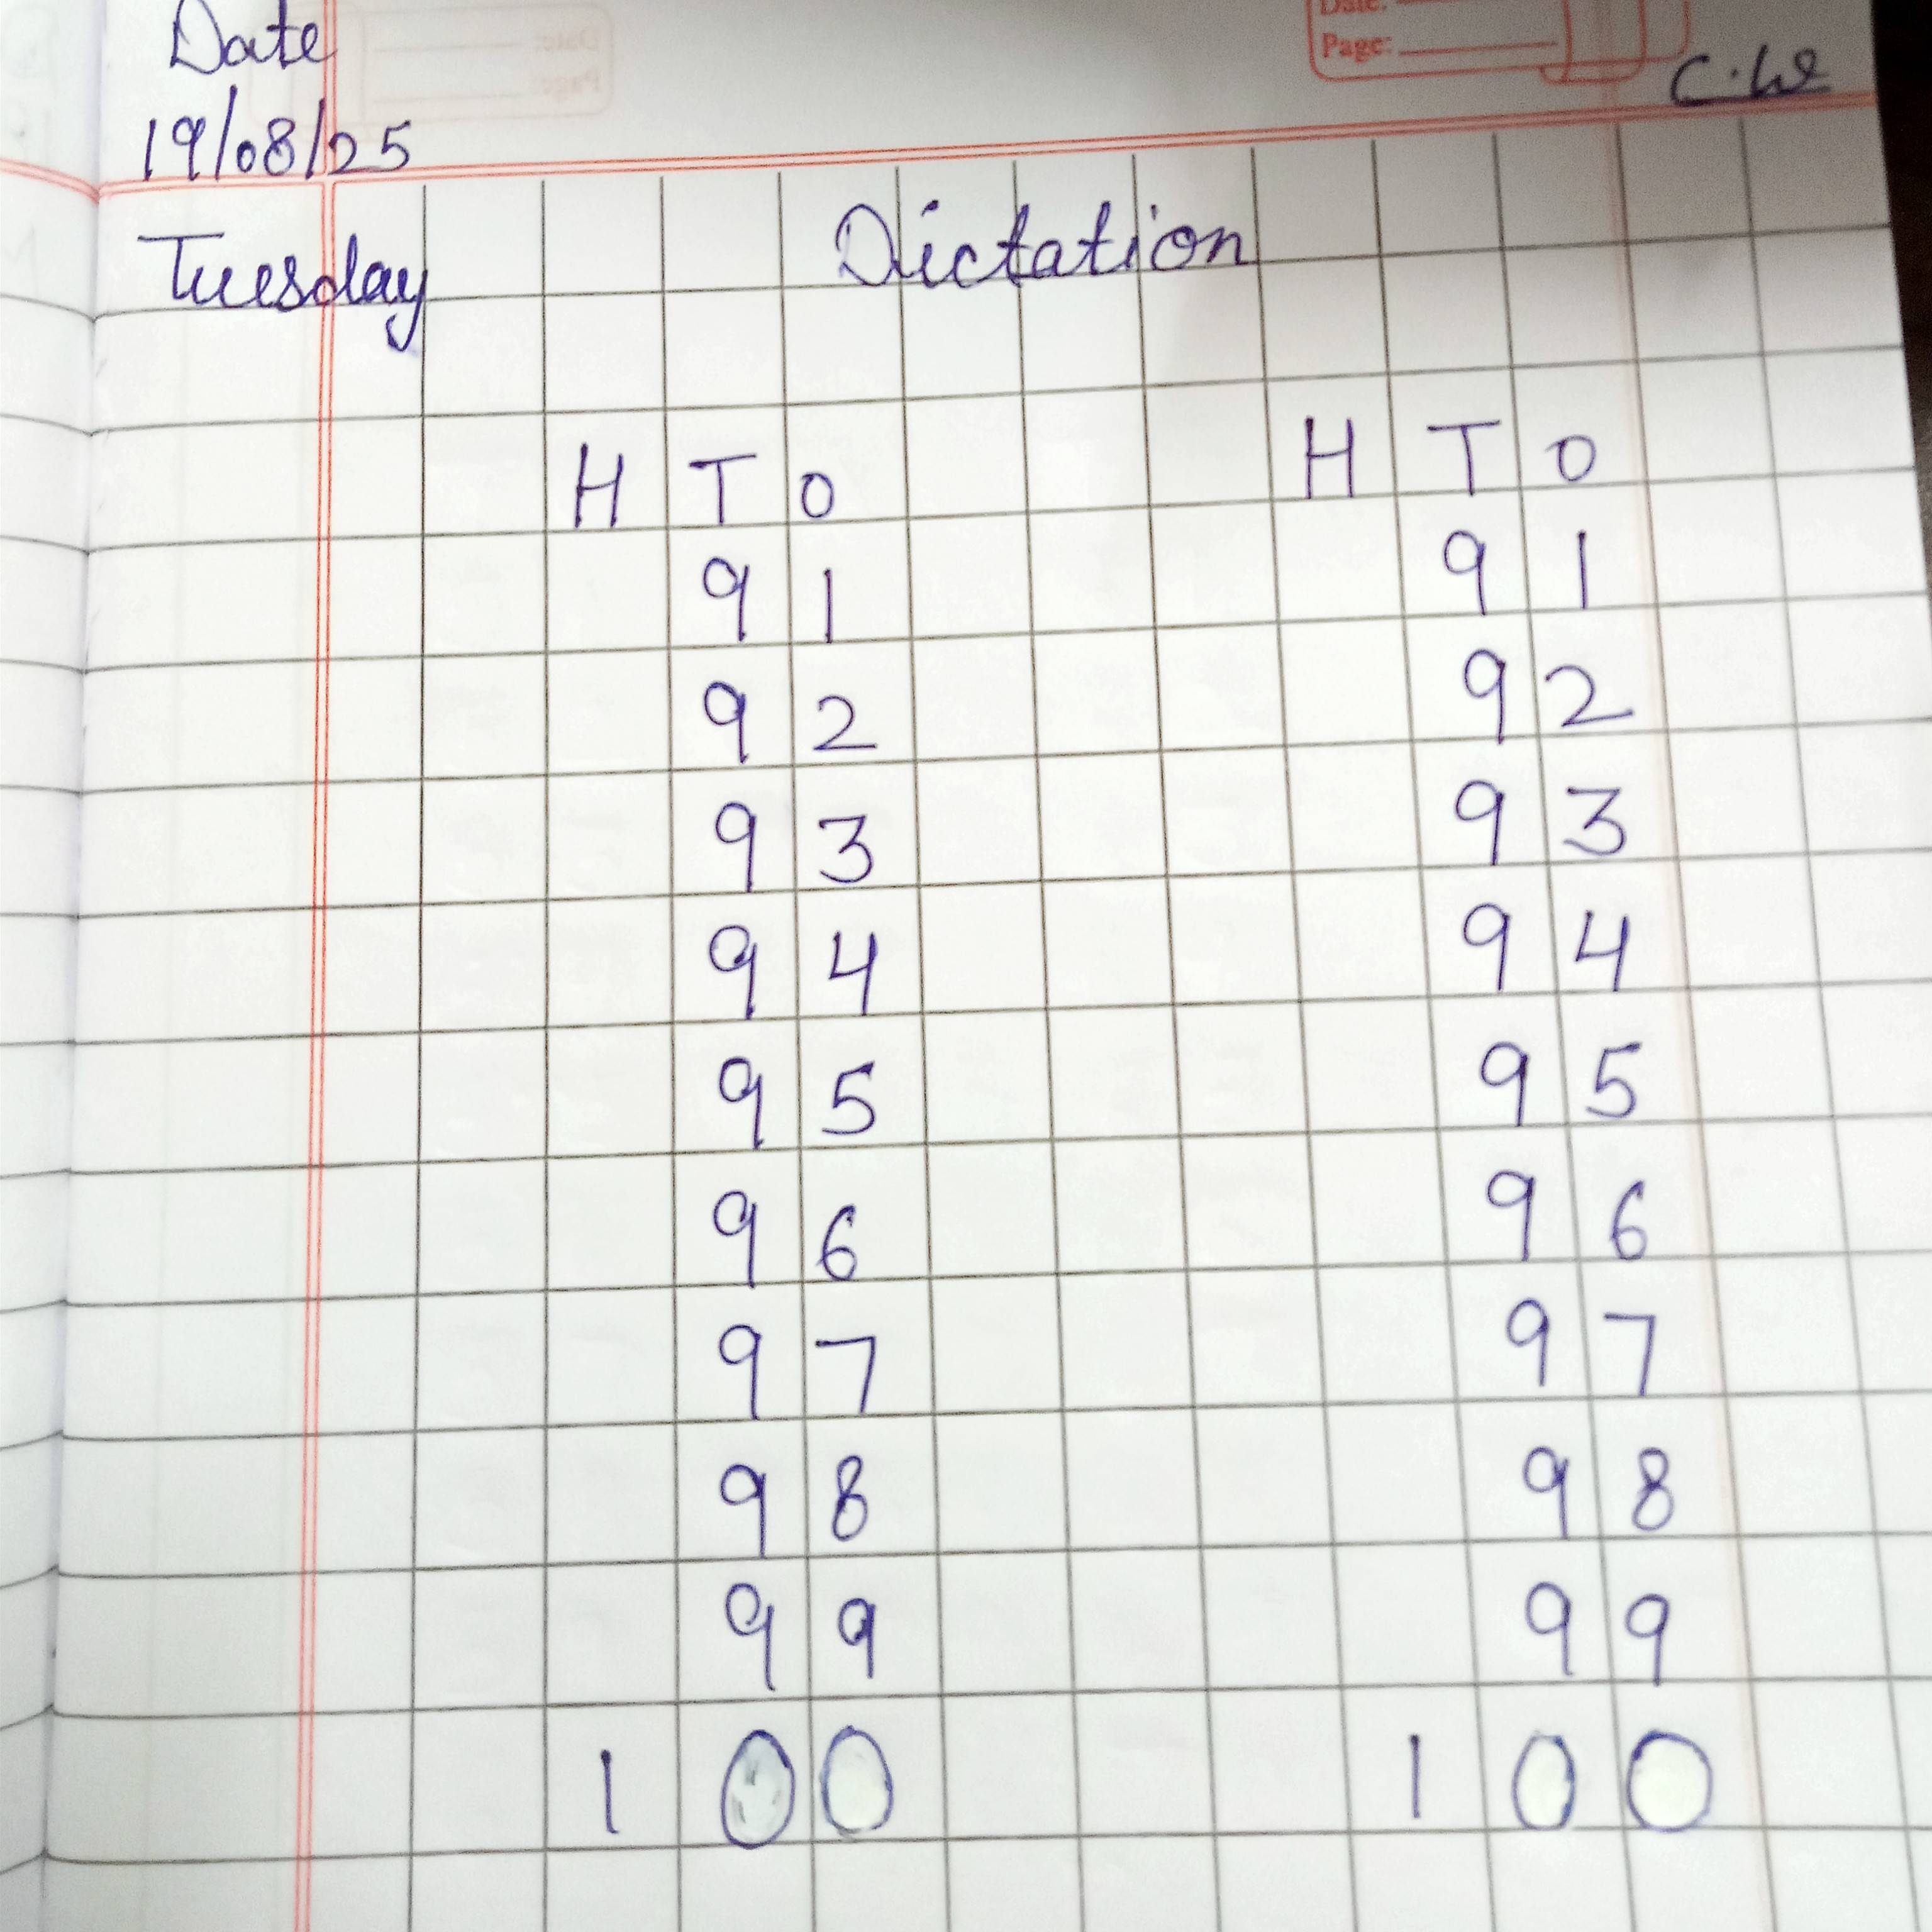 Date
Date:
Page:
C.W
19/08/25
Tuesday Dictation
H T O H T O
9 1 9 1
9 2 9 2
9 3 9 3
9 4 9 4
9 5 9 5
9 6 9 6
9 7 9 7
9 8 9 8
9 9 9 9
1 0 0 1 0 0